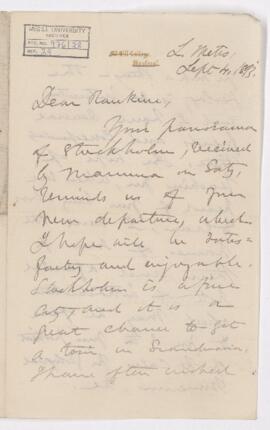 McGILL UNIVERSITY
ARCHIVES
ACC. NO.
REF.
McGill College
Montreal
L. Metis,
Sept 4, 189
Dear Rankine,
Your panorama
of Stockholm, received
by Mamma on Saty,
reminds us of your
new departure, which
I hope will be satis-
factory and enjoyable.
Stockholm is a fine
city, and it is a
great chance to get
a tour in Scandinavia.
I have often wished